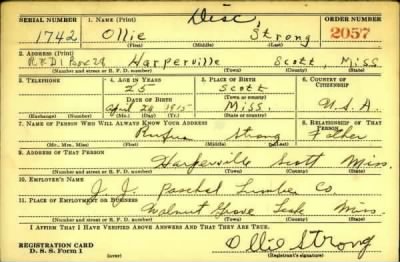 Disc.
SERIAL NUMBER 1. NAME (Print) ORDER NUMBER
1742 Ollie Strong 2057
(First) (Middle) (Last)
2. ADDRESS (Print)
R.F.D 1 Box 28 Harperville Scott, Miss
(Number and street or R. F. D. number) (Town) (County) (State)
3. TELEPHONE 4. AGE IN YEARS 5. PLACE OF BIRTH 6. COUNTRY OF CITIZENSHIP
25 Scott
DATE OF BIRTH (Town or county)
April 28 1915 Miss. U.S.A.
(Exchange) (Number) (Mo.) (Day) (Yr.) (State or country)
7. NAME OF PERSON WHO WILL ALWAYS KNOW YOUR ADDRESS 8. RELATIONSHIP OF THAT PERSON
Rufus Strong Father
(Mr., Mrs., Miss) (First) (Middle) (Last)
9. ADDRESS OF THAT PERSON
Harperville Scott Miss.
(Number and street or R. F. D. number) (Town) (County) (State)
10. EMPLOYER'S NAME
J. J. Paschel Lumber Co
11. PLACE OF EMPLOYMENT OR BUSINESS
Walnut Grove Leak Miss.
(Number and street or R. F. D. number) (Town) (County) (State)
I AFFIRM THAT I HAVE VERIFIED ABOVE ANSWERS AND THAT THEY ARE TRUE.
REGISTRATION CARD
D. S. S. Form 1
Ollie Strong
(Registrant's signature)